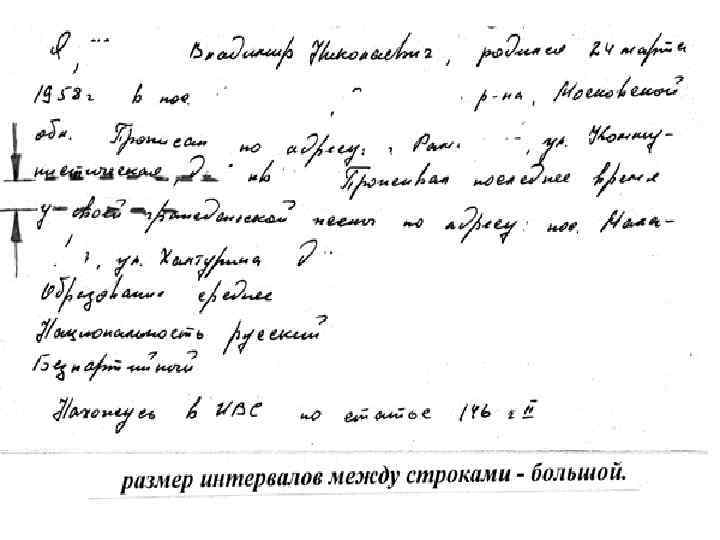 Я, Владимир Николаевич, родился 24 марта
1958 г в пос. р-на, Московской
обл. Прописан по адресу: г Рам. , ул. Комму-
нистическая, д. кв Проживал последнее время
у своей гражданской жены по адресу: пос. Мала-
, ул. Халтурина д
Образование среднее
Национальность русский
Безпартийный
Нахожусь в ИВС по статье 146 г II
размер интервалов между строками - большой.